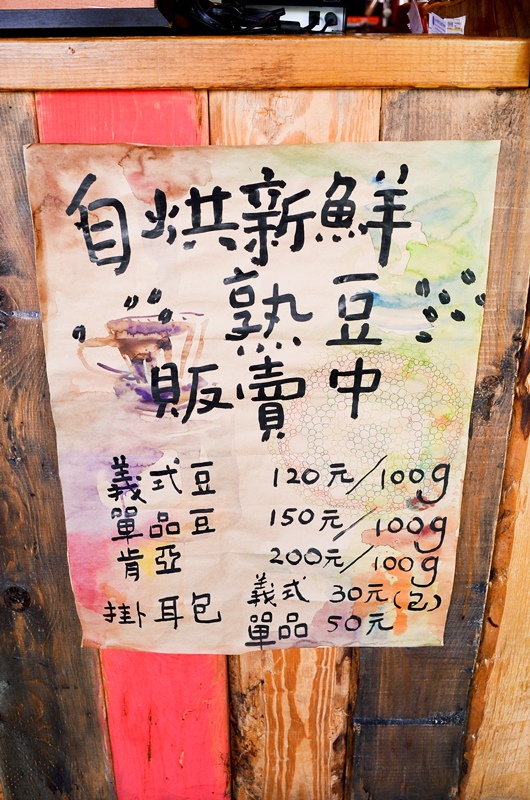 自烘新鮮
熟豆
販賣中
義式豆 120元/100g
單品豆 150元/100g
肯亞 200元/100g
掛耳包 義式 30元(包)
單品 50元